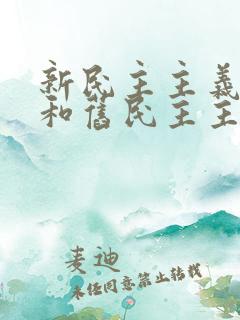 新民主主義
和舊民主主
麦迪
未经同意禁止转载